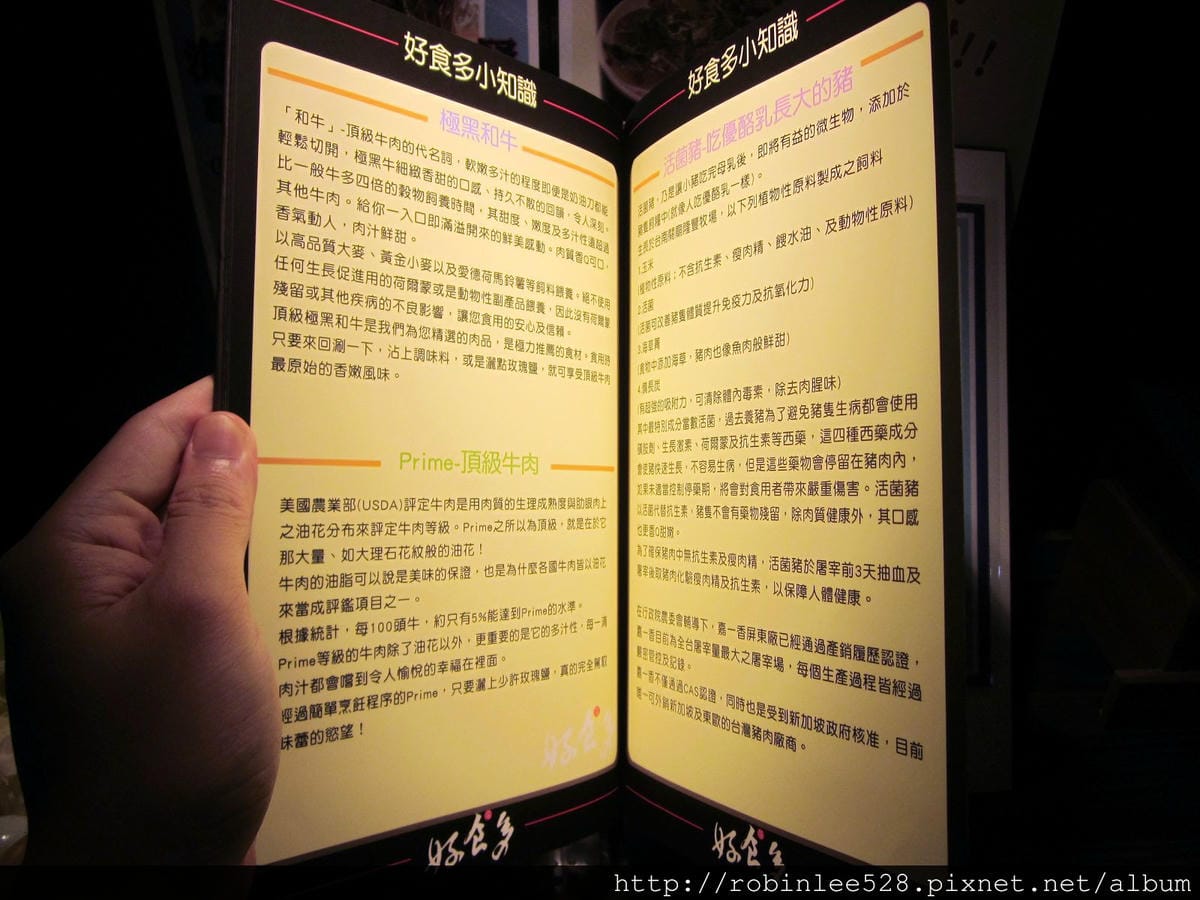 好食多小知識
極黑和牛
「和牛」-頂級牛肉的代名詞，軟嫩多汁的程度即便是奶油刀都能
輕鬆切開，極黑牛細緻香甜的口感、持久不散的回韻，令人深刻。
比一般牛多四倍的穀物飼養時間，其甜度、嫩度及多汁性遠超過
其他牛肉。給你一入口即滿溢開來的鮮美感動。肉質香Q可口，
香氣動人，肉汁鮮甜。
以高品質大麥、黃金小麥以及愛德荷馬鈴薯等飼料餵養。絕不使用
任何生長促進用的荷爾蒙或是動物性副產品餵養，因此沒有荷爾蒙
殘留或其他疾病的不良影響，讓您食用的安心及信賴。
頂級極黑和牛是我們為您精選的肉品，是極力推薦的食材。食用時
只要來回涮一下，沾上調味料，或是灑點玫瑰鹽，就可享受頂級牛肉
最原始的香嫩風味。
Prime-頂級牛肉
美國農業部(USDA)評定牛肉是用肉質的生理成熟度與肋眼肉上
之油花分布來評定牛肉等級。Prime之所以為頂級，就是在於它
那大量、如大理石花紋般的油花！
牛肉的油脂可以說是美味的保證，也是為什麼各國牛肉皆以油花
來當成評鑑項目之一。
根據統計，每100頭牛，約只有5%能達到Prime的水準。
Prime等級的牛肉除了油花以外，更重要的是它的多汁性，每一滴
肉汁都會嚐到令人愉悅的幸福在裡面。
經過簡單烹飪程序的Prime，只要灑上少許玫瑰鹽，真的完全擄取
味蕾的慾望！
好食多
好食多
好食多小知識
活菌豬-吃優酪乳長大的豬
活菌豬，乃是讓小豬吃完母乳後，即將有益的微生物，添加於
豬隻飼糧中(就像人吃優酪乳一樣)。
生長於台南關廟隆豐牧場，以下列植物性原料製成之飼料
1.玉米
(植物性原料；不含抗生素、瘦肉精、餿水油、及動物性原料)
2.活菌
(活菌可改善豬隻體質提升免疫力及抗氧化力)
3.海草膏
(食物中添加海草，豬肉也像魚肉般鮮甜)
4.備長炭
(有超強的吸附力，可清除體內毒素，除去肉腥味)
其中最特別成分當數活菌，過去養豬為了避免豬隻生病都會使用
磺胺劑、生長激素、荷爾蒙及抗生素等西藥，這四種西藥成分
會使豬快速生長，不容易生病，但是這些藥物會停留在豬肉內，
如果未適當控制停藥期，將會對食用者帶來嚴重傷害。活菌豬
以活菌代替抗生素，豬隻不會有藥物殘留，除肉質健康外，其口感
也更香Q甜嫩。
為了確保豬肉中無抗生素及瘦肉精，活菌豬於屠宰前3天抽血及
屠宰後取豬肉化驗瘦肉精及抗生素，以保障人體健康。
在行政院農委會輔導下，嘉一香屏東廠已經通過產銷履歷認證，
嘉一香目前為全台屠宰量最大之屠宰場，每個生產過程皆經過
嚴密管控及記錄。
嘉一香不僅通過CAS認證，同時也是受到新加坡政府核准，目前
唯一可外銷新加坡及東歐的台灣豬肉廠商。
好食多
http://robinlee528.pixnet.net/album